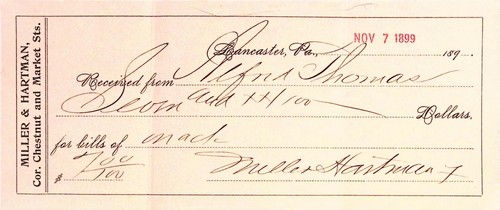 MILLER & HARTMAN,
Cor. Chestnut and Market Sts.
Lancaster, Pa., NOV 7 1899 189
Received from Alfred Thomas
Seven and 44/100 Dollars.
for bills of
$
Miller Hartman